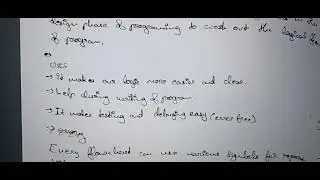 design phase of programing to work out the logical
of program.
uses
→ It makes our logic more easier and clear.
→ help during writing of program
→ It makes testing and debuging easy (error free)
Every flowchart can use various symbols for